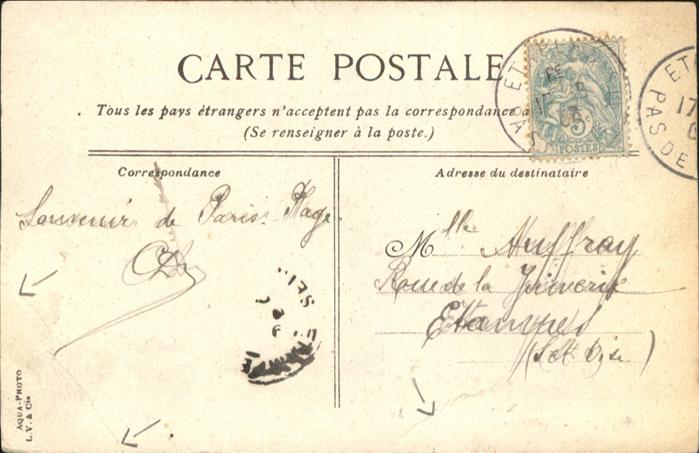 CARTE POSTALE
Tous les pays étrangers n'acceptent pas la correspondance a
(Se renseigner à la poste.)
Correspondance
Souvenir de Paris-Plage
Adresse du destinataire
Mlle Auffray
de la Juiverie
Etampes
(S et Oise)
5c
POSTES
ET
PAS DE
17
SEI
AQUA-PHOTO
L. V. & Cie